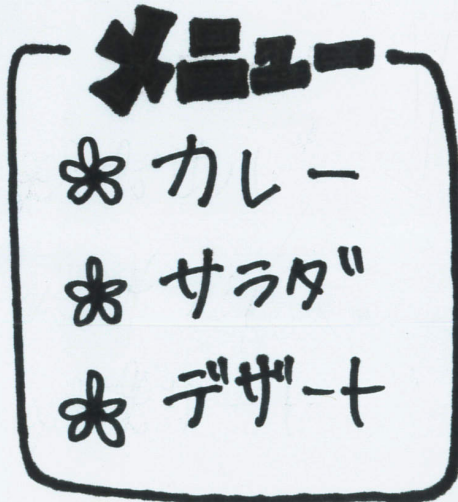 メニュー
カレー
サラダ
デザート